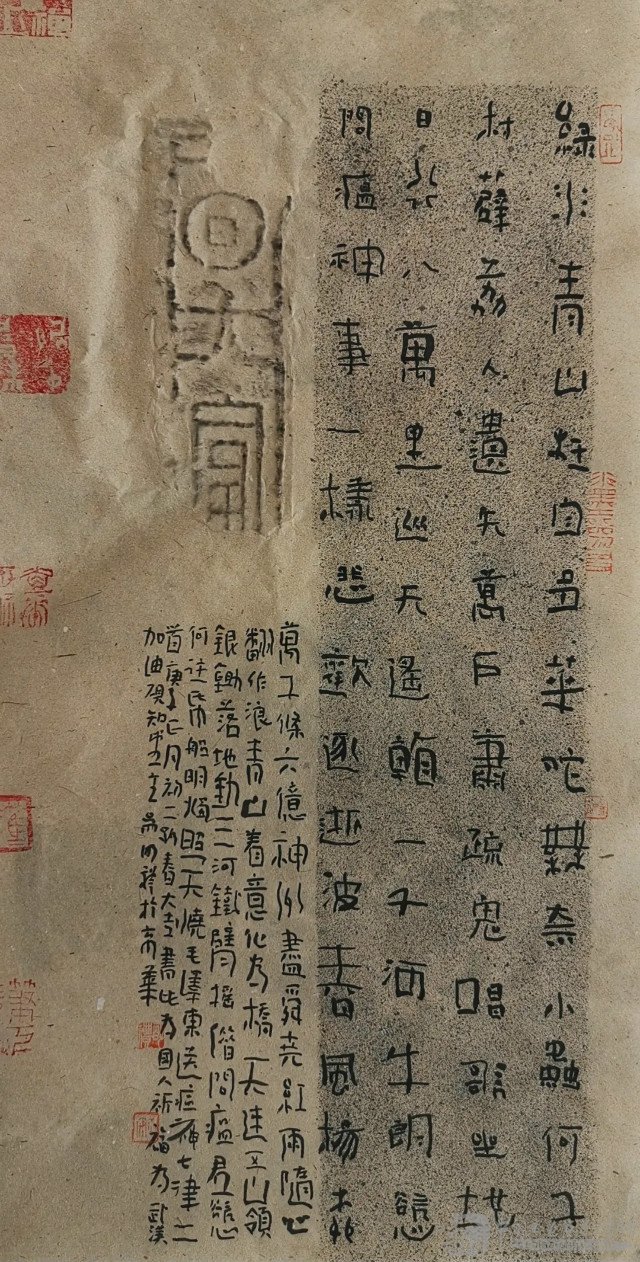 綠水青山枉自多華佗無奈小蟲何千
村薜荔人遺矢萬戶肅疏鬼唱歌坐地
日行八萬里巡天遙看一千河牛郎慾
問瘟神事一樣悲歡逐逝波春風楊柳
萬千條六億神州盡舜堯紅雨隨心
翻作浪青山着意化為橋天連五嶺
銀鋤落地動三河鐵臂搖借問瘟君慾
何往紙船明燭照天燒毛澤東送瘟神七律二
首庚子正月初二春大吉書此為國人祈福為武漢
加油於京華